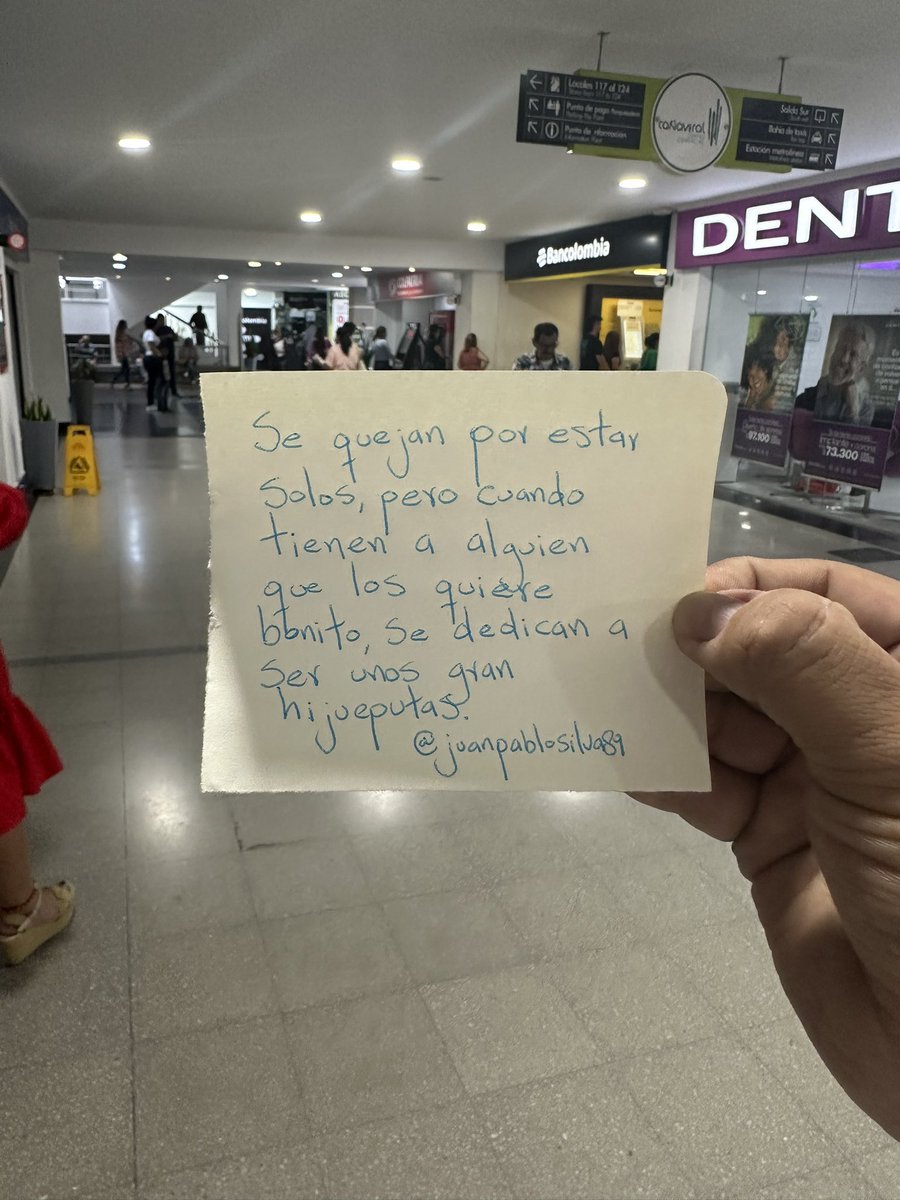 Locales 117 al 124
Punto de información
cañaveral
Salida Sur
Bahía de taxis
Estación metrolínea
Bancolombia
DENT
$7.100
$73.300
Se quejan por estar
solos, pero cuando
tienen a alguien
que los quiere
bonito, se dedican a
ser unos gran
hijueputas.
@juanpablosilva89